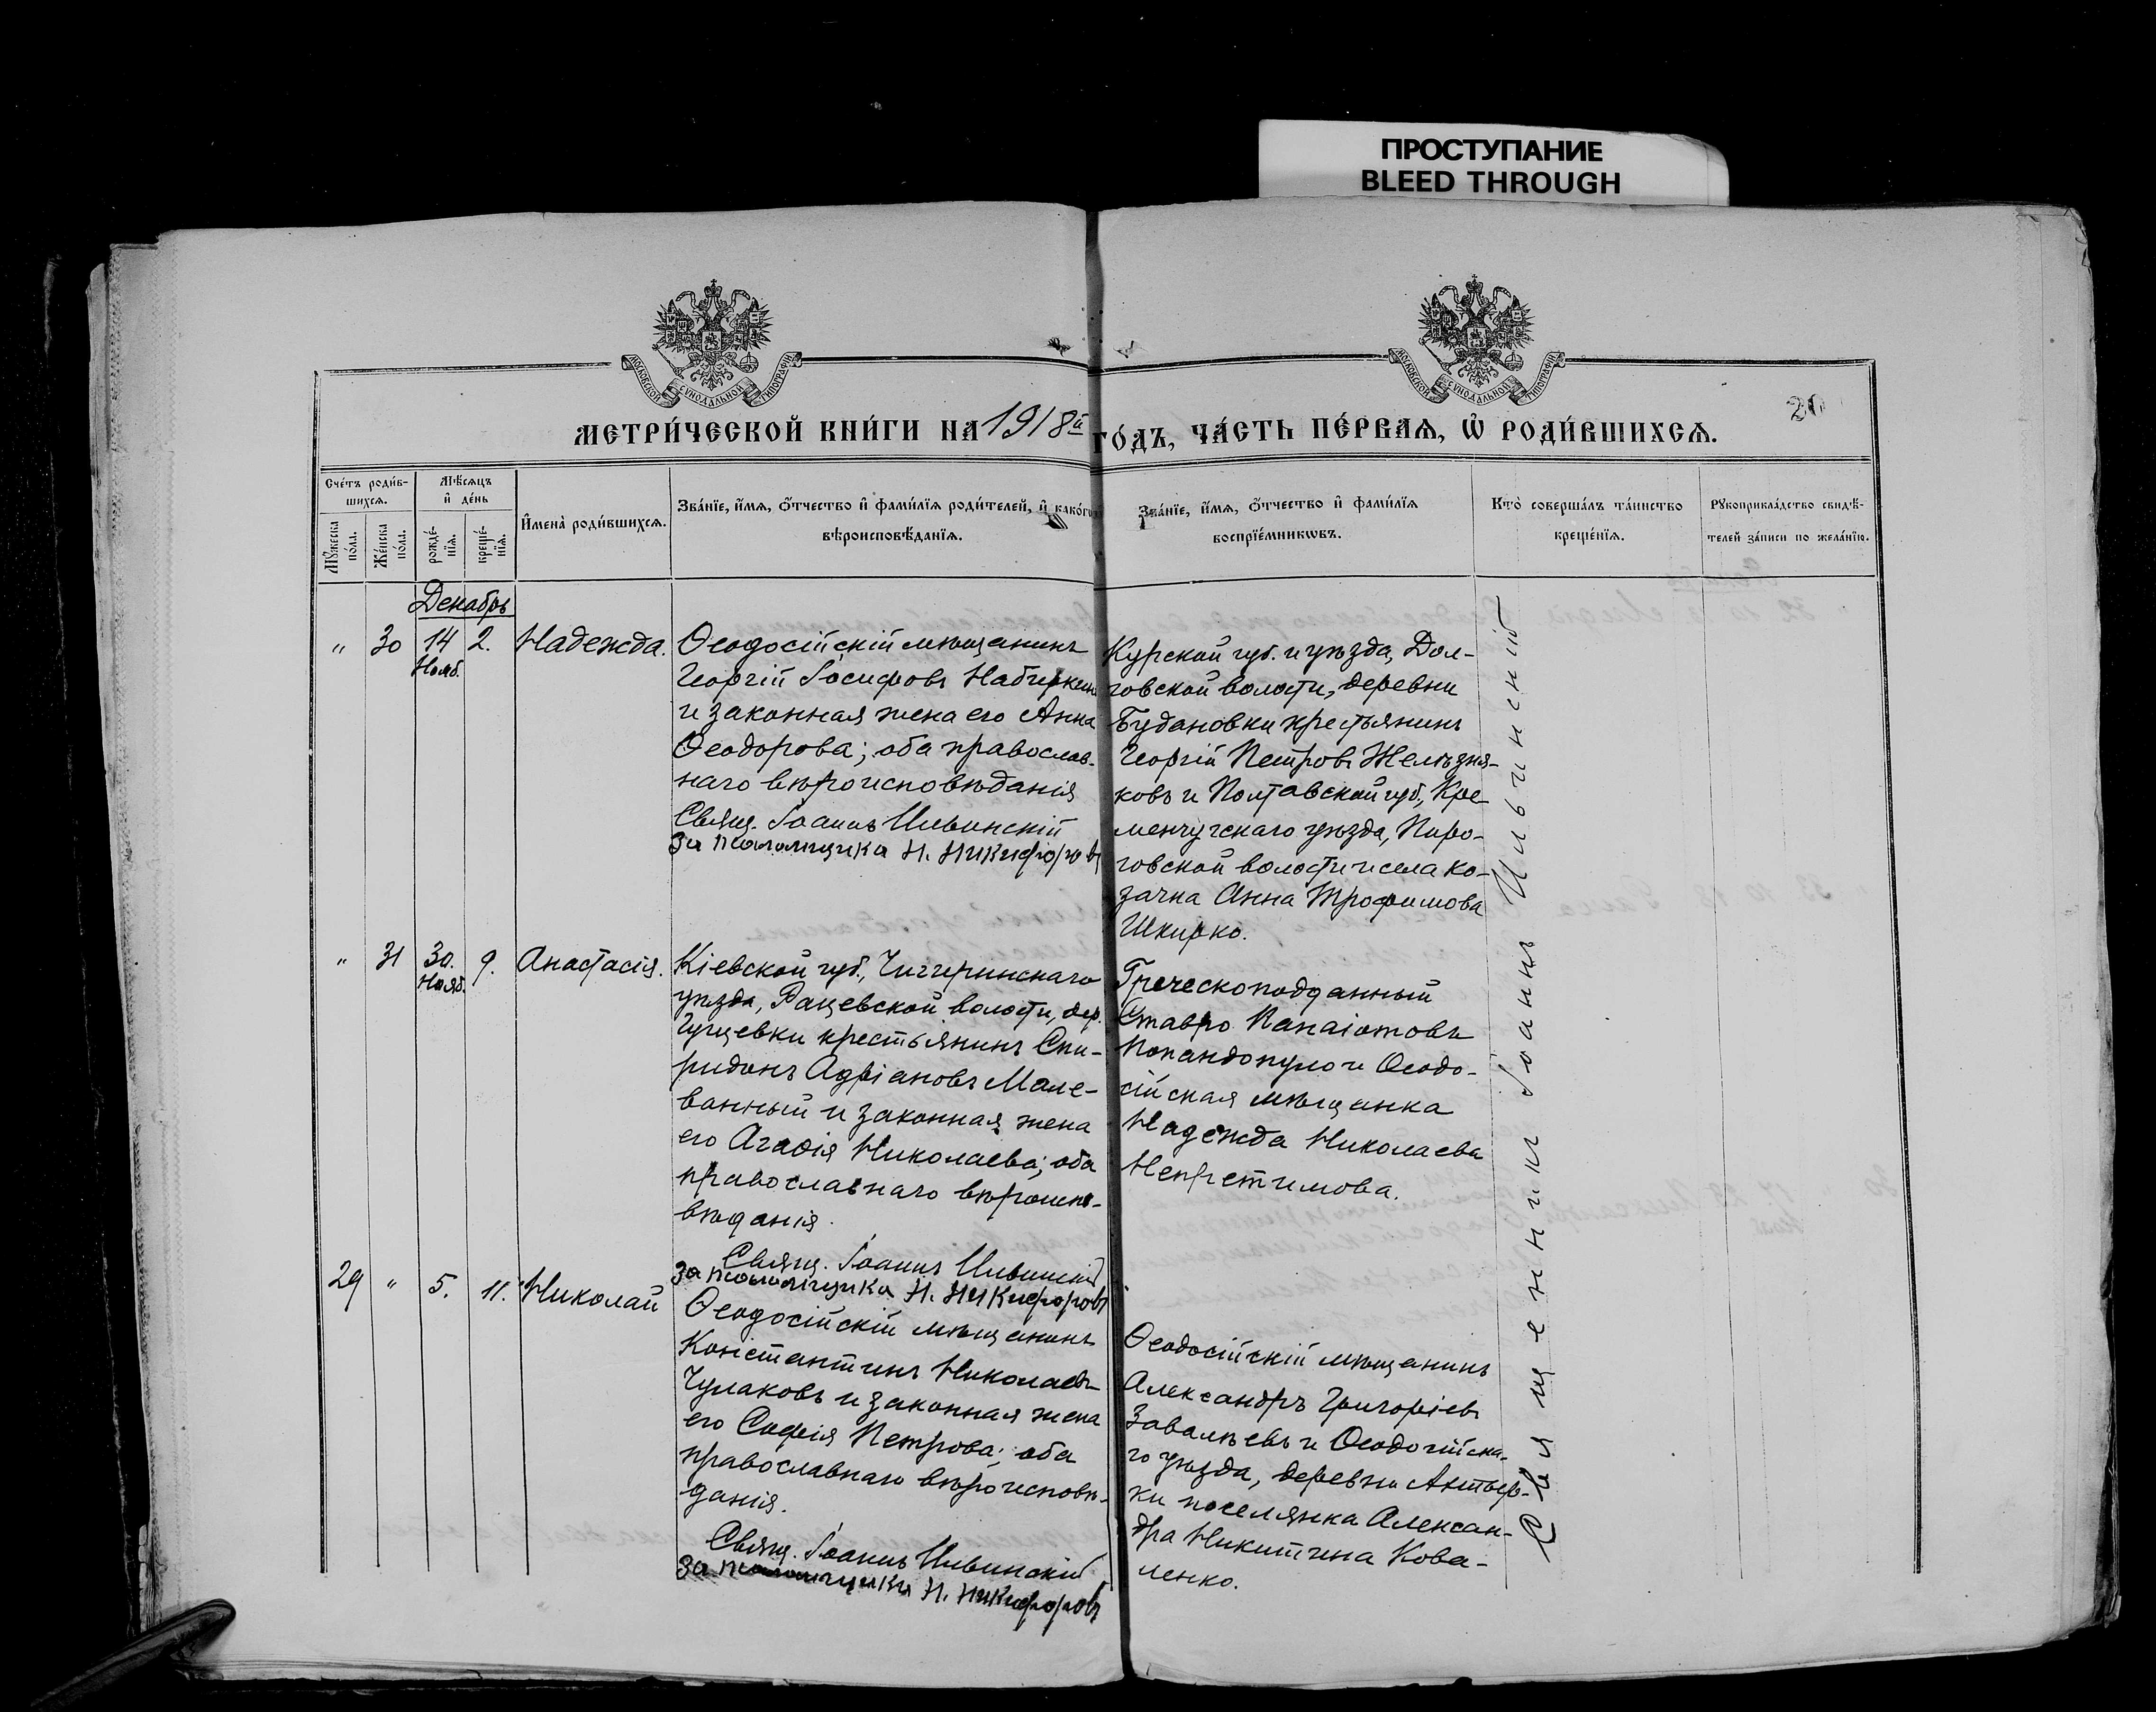 ПРОСТУПАНИЕ
BLEED THROUGH
МОСКОВСКОЙ СУНОДАЛЬНОЙ ТИПОГРАФІИ
МОСКОВСКОЙ СУНОДАЛЬНОЙ ТИПОГРАФІИ
20
МЕТРИ́ЧЕСКОЙ КНИ́ГИ НА 1918й ГО́ДЪ, ЧА́СТЬ ПЕ́РВАЯ, Ѡ҆ РОДИ́ВШИХСѦ.
Сче́тъ роди́в-
шихся.
Мѣ́сяцъ
и҆ де́нь
Мꙋ́жеска
по́ла.
Же́нска
по́ла.
рожде́-
нїя.
креще́-
нїя.
И҆мена̀ роди́вшихся.
Зва́нїе, и҆́мя, ѻ҆́тчество и҆ фамилїя роди́телей, и҆ како́гѡ
вѣроисповѣ́данїя.
Зва́нїе, и҆́мя, ѻ҆́тчество и҆ фами́лїя
воспрїе́мникѡвъ.
Кто̀ соверша́лъ та́инство
креще́нїя.
Рꙋкоприкла́дство свидѣ́-
телей за́писи по жела́нїю.
Декабрь
" 30 14 Нояб. 2. Надежда.
Ѳеодосійскій мѣщанинъ
Георгій Іосифовъ
и законная жена его Анна
Ѳеодорова; оба православ-
наго вѣроисповѣданія
Свящ. Іоаннъ Ильинскій
За псаломщика Н. Никифоровъ
Курской губ. и уѣзда, Дол-
говской волости, деревни
Будановки крестьянинъ
Георгій Петровъ Желѣзня-
ковъ и Полтавской губ., Кре-
менчугскаго уѣзда, Пиро-
говской волости и села ко-
зачка Анна Трофимова
Шкирко.
" 31 30. Нояб. 9. Анастасія.
Кіевской губ., Чигиринскаго
уѣзда, Рацевской волости, дер.
крестьянинъ Спи-
ридонъ Адріановъ Мале-
ванный и законная жена
его Агафія Николаева; оба
православнаго вѣроиспо-
вѣданія.
Свящ. Іоаннъ Ильинскій
За псаломщика Н. Никифоровъ
Греческоподданный
Ставро Панаіотовъ
Попандопуло и Ѳеодо-
сійская мѣщанка
Надежда Николаева
29 " 5. 11. Николай
Ѳеодосійскій мѣщанинъ
Константинъ Николаевъ
Чулаковъ и законная жена
его Софія Петрова; оба
православнаго вѣроисповѣ-
данія.
Свящ. Іоаннъ Ильинскій
За псаломщика Н. Никифоровъ
Ѳеодосійскій мѣщанинъ
Александръ Григоріевъ
и Ѳеодосійска-
го уѣзда, деревни
поселянка Алексан-
дра Никитина Кова-
ленко.
Священникъ Іоаннъ Ильинскій